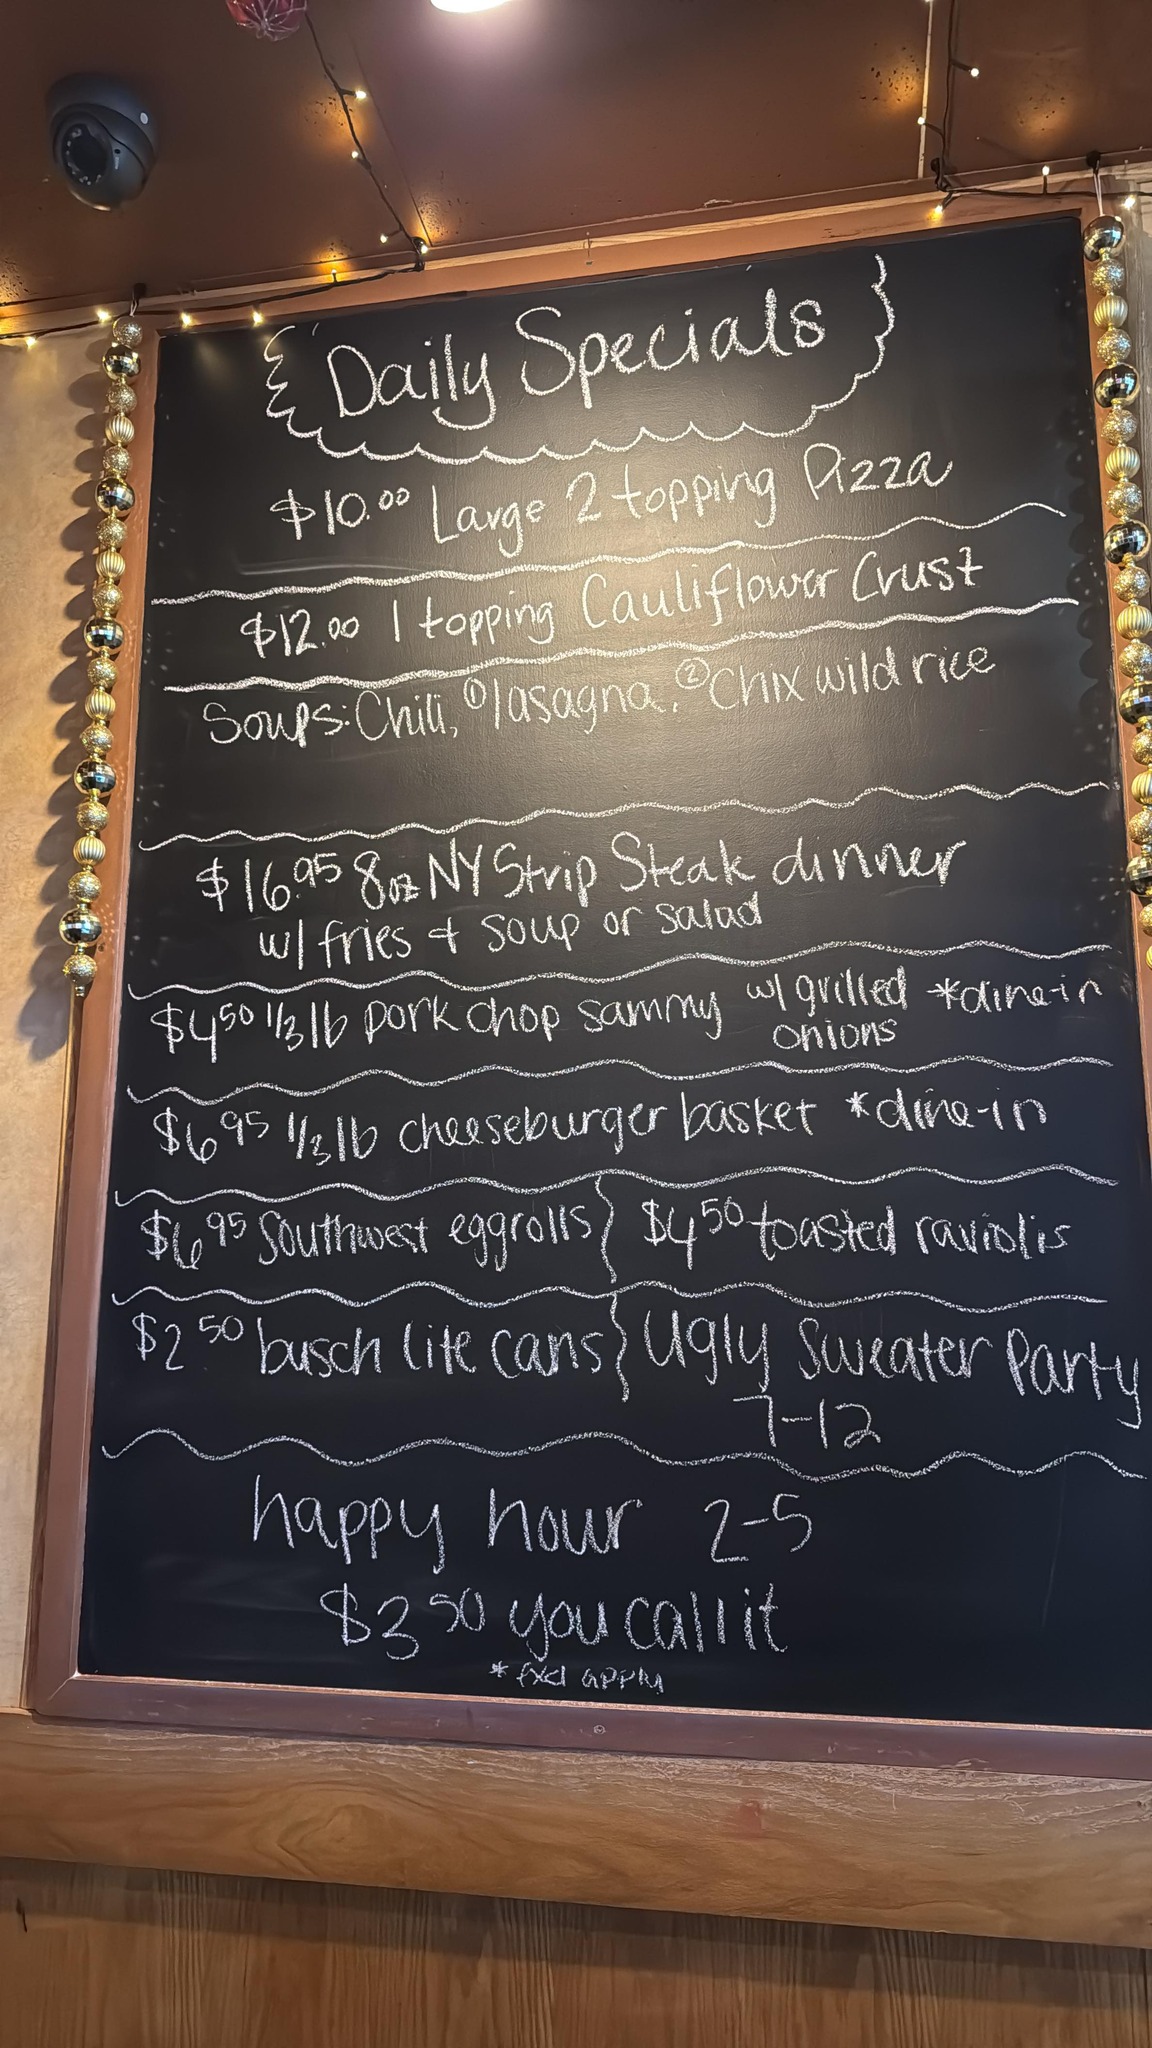 Daily Specials
$10.00 Large 2 topping Pizza
$12.00 1 topping Cauliflower Crust
Soups: Chili, ①lasagna, ②Chix wild rice
$16.95 8oz NY Strip Steak dinner
w/ fries & soup or salad
$4.50 1/3 lb pork chop sammy w/ grilled onions *dine-in
$6.95 1/3 lb cheeseburger basket *dine-in
$6.95 Southwest eggrolls } $4.50 toasted raviolis
$2.50 busch lite cans } Ugly Sweater Party
7-12
happy hour 2-5
$3.50 you call it
* Excl apply